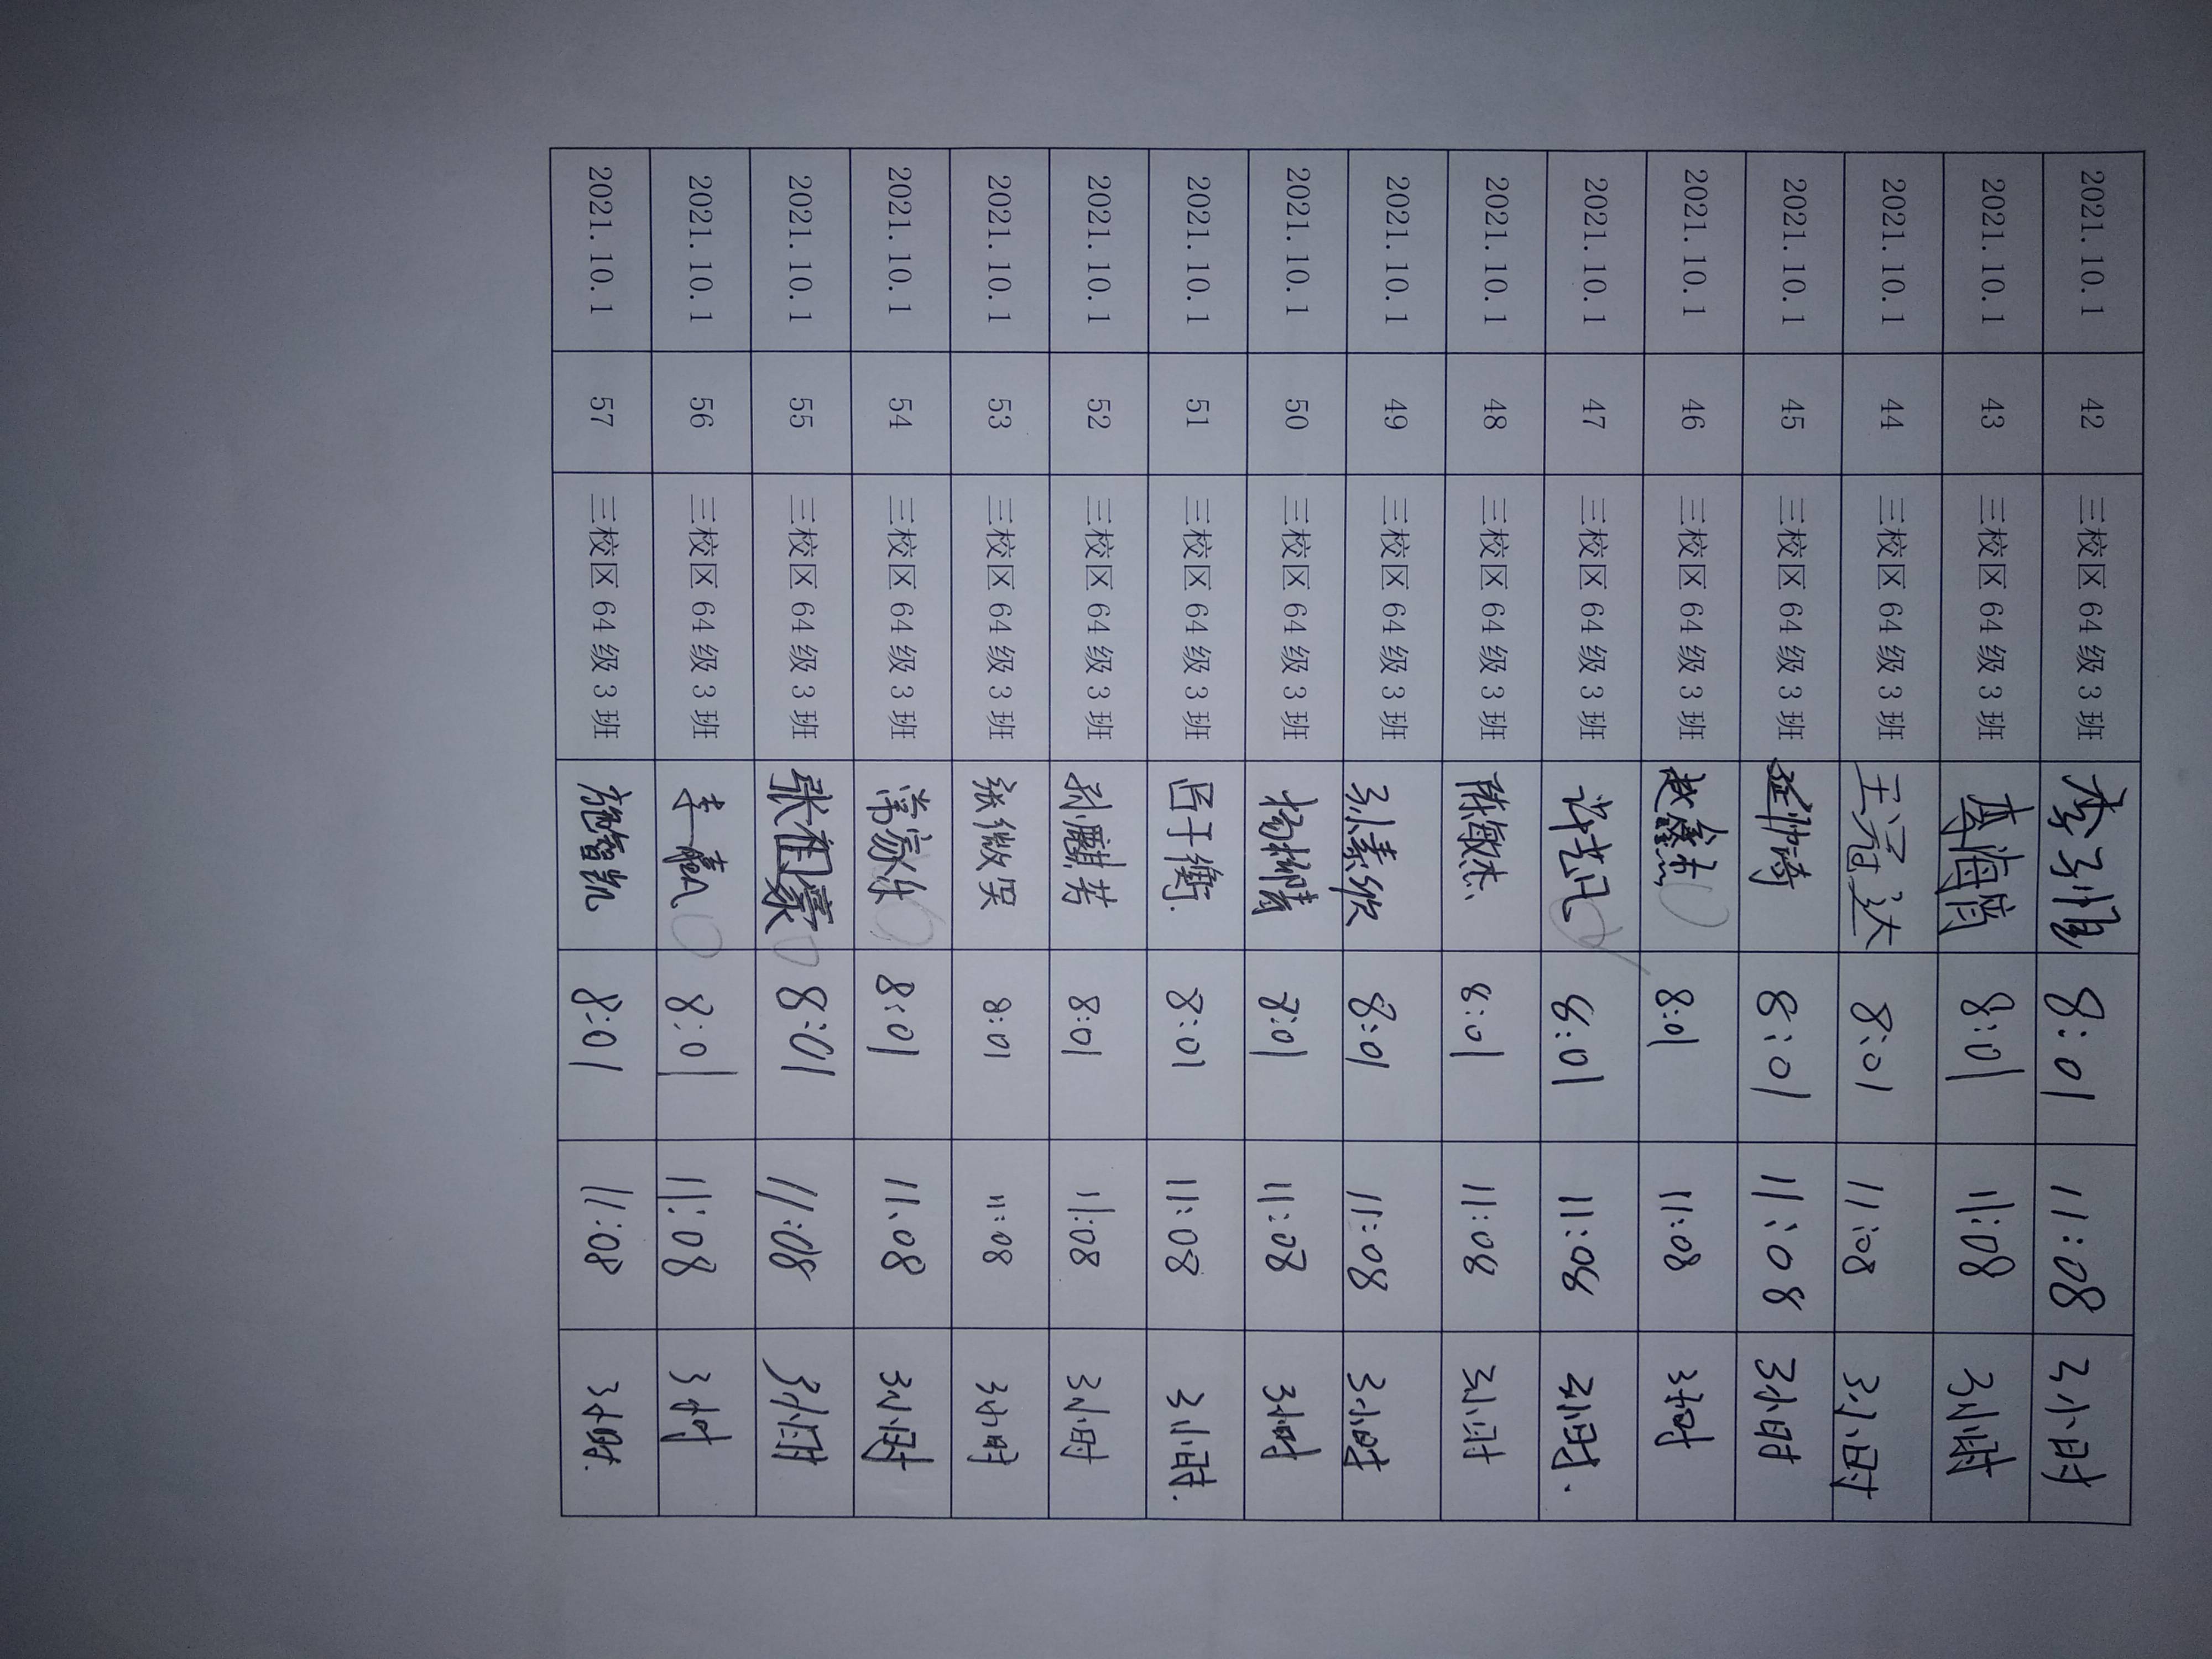 2021. 10. 1 42 三校区 64 级 3 班 李 8:01 11:08 3小时
2021. 10. 1 43 三校区 64 级 3 班 李海 8:01 11:08 3小时
2021. 10. 1 44 三校区 64 级 3 班 王冠达 8:01 11:08 3小时
2021. 10. 1 45 三校区 64 级 3 班 8:01 11:08 3小时
2021. 10. 1 46 三校区 64 级 3 班 赵鑫杰 8:01 11:08 3小时
2021. 10. 1 47 三校区 64 级 3 班 8:01 11:08 3小时.
2021. 10. 1 48 三校区 64 级 3 班 陈敏杰 8:01 11:08 3小时
2021. 10. 1 49 三校区 64 级 3 班 8:01 11:08 3小时
2021. 10. 1 50 三校区 64 级 3 班 杨 8:01 11:08 3小时
2021. 10. 1 51 三校区 64 级 3 班 吕子衡. 8:01 11:08 3小时.
2021. 10. 1 52 三校区 64 级 3 班 孙麒 8:01 11:08 3小时
2021. 10. 1 53 三校区 64 级 3 班 张微昊 8:01 11:08 3小时
2021. 10. 1 54 三校区 64 级 3 班 常家 8:01 11:08 3小时
2021. 10. 1 55 三校区 64 级 3 班 张相豪 8:01 11:08 3小时
2021. 10. 1 56 三校区 64 级 3 班 李赢 8:01 11:08 3小时
2021. 10. 1 57 三校区 64 级 3 班 施智凯 8:01 11:08 3小时.